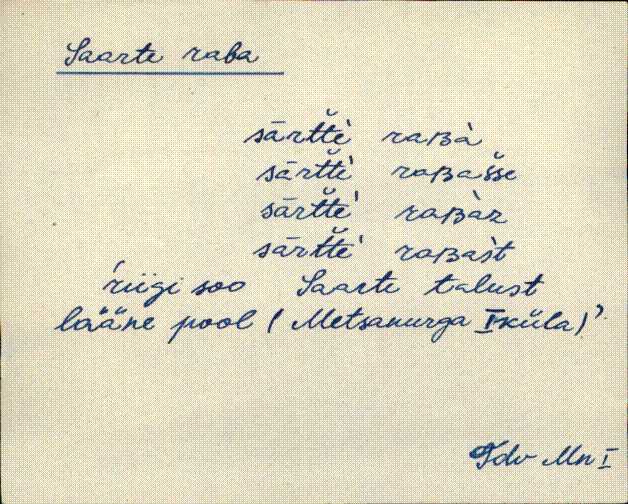 Saarte raba
sārt̆t̆è raʙà
sārt̆t̆è raʙas̆s̆e
sārt̆t̆è raʙàz
sārt̆t̆è raʙas̀t
'riigi soo Saarte talust
lääne pool (Metsanurga I küla)'
Tdv Mn I